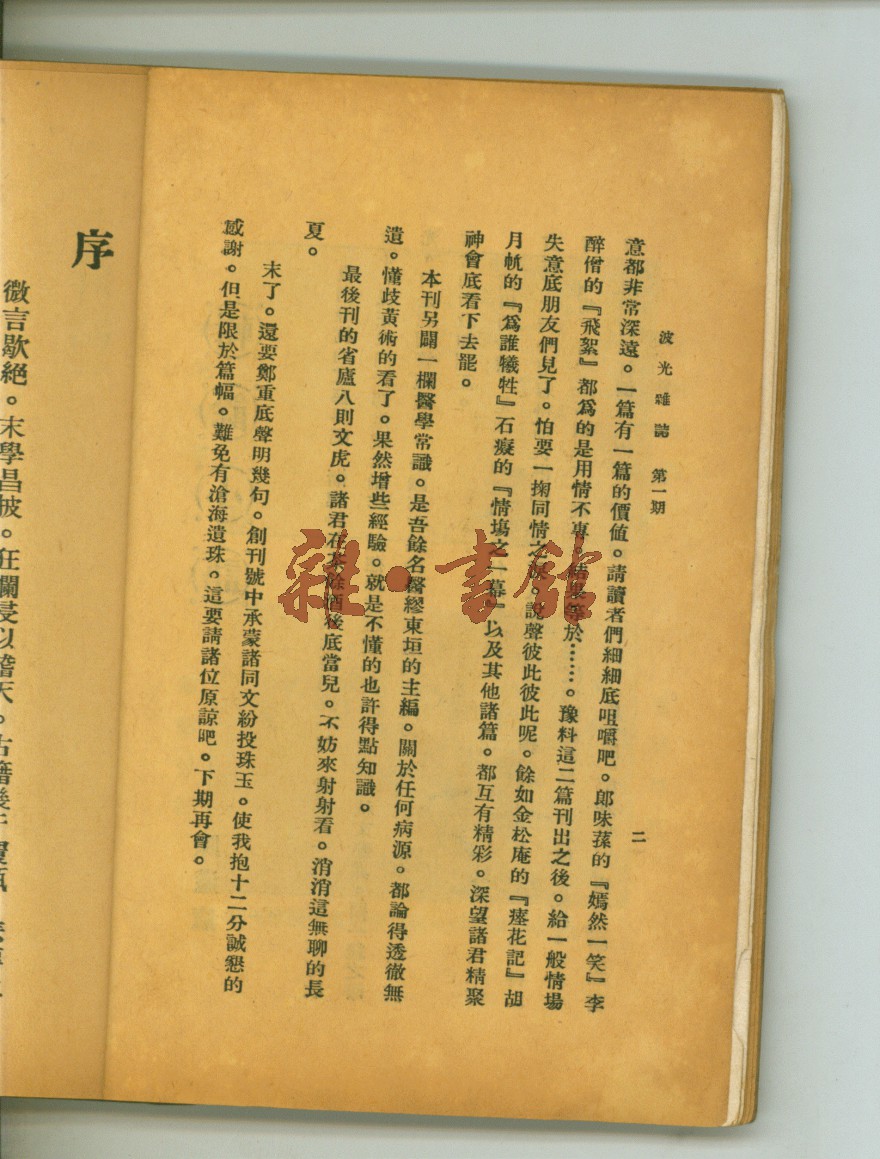 波光雜誌 第一期
二
意都非常深遠。一篇有一篇的價値。請讀者們細細底咀嚼吧。郎味蓀的『嫣然一笑』李
醉僧的『飛絮』都爲的是用情不專。結果等於……。豫料這二篇刊出之後。給一般情場
失意底朋友們見了。怕要一掬同情之淚。說聲彼此彼此呢。餘如金松庵的『瘞花記』胡
月帆的『爲誰犧牲』石癡的『情塲之一幕』以及其他諸篇。都互有精彩。深望諸君精聚
神會底看下去罷。
本刊另闢一欄醫學常識。是吾餘名醫繆東垣的主編。關於任何病源。都論得透徹無
遺。懂歧黃術的看了。果然增些經驗。就是不懂的也許得點知識。
最後刊的省廬八則文虎。諸君在茶餘酒後底當兒。不妨來射射看。消消這無聊的長
夏。
末了。還要鄭重底聲明幾句。創刊號中承蒙諸同文紛投珠玉。使我抱十二分誠懇的
感謝。但是限於篇幅。難免有滄海遺珠。這要請諸位原諒吧。下期再會。
雜·書館
序
微言歇絕。末學昌披。狂瀾浸以稽天。古籍幾于覆瓿